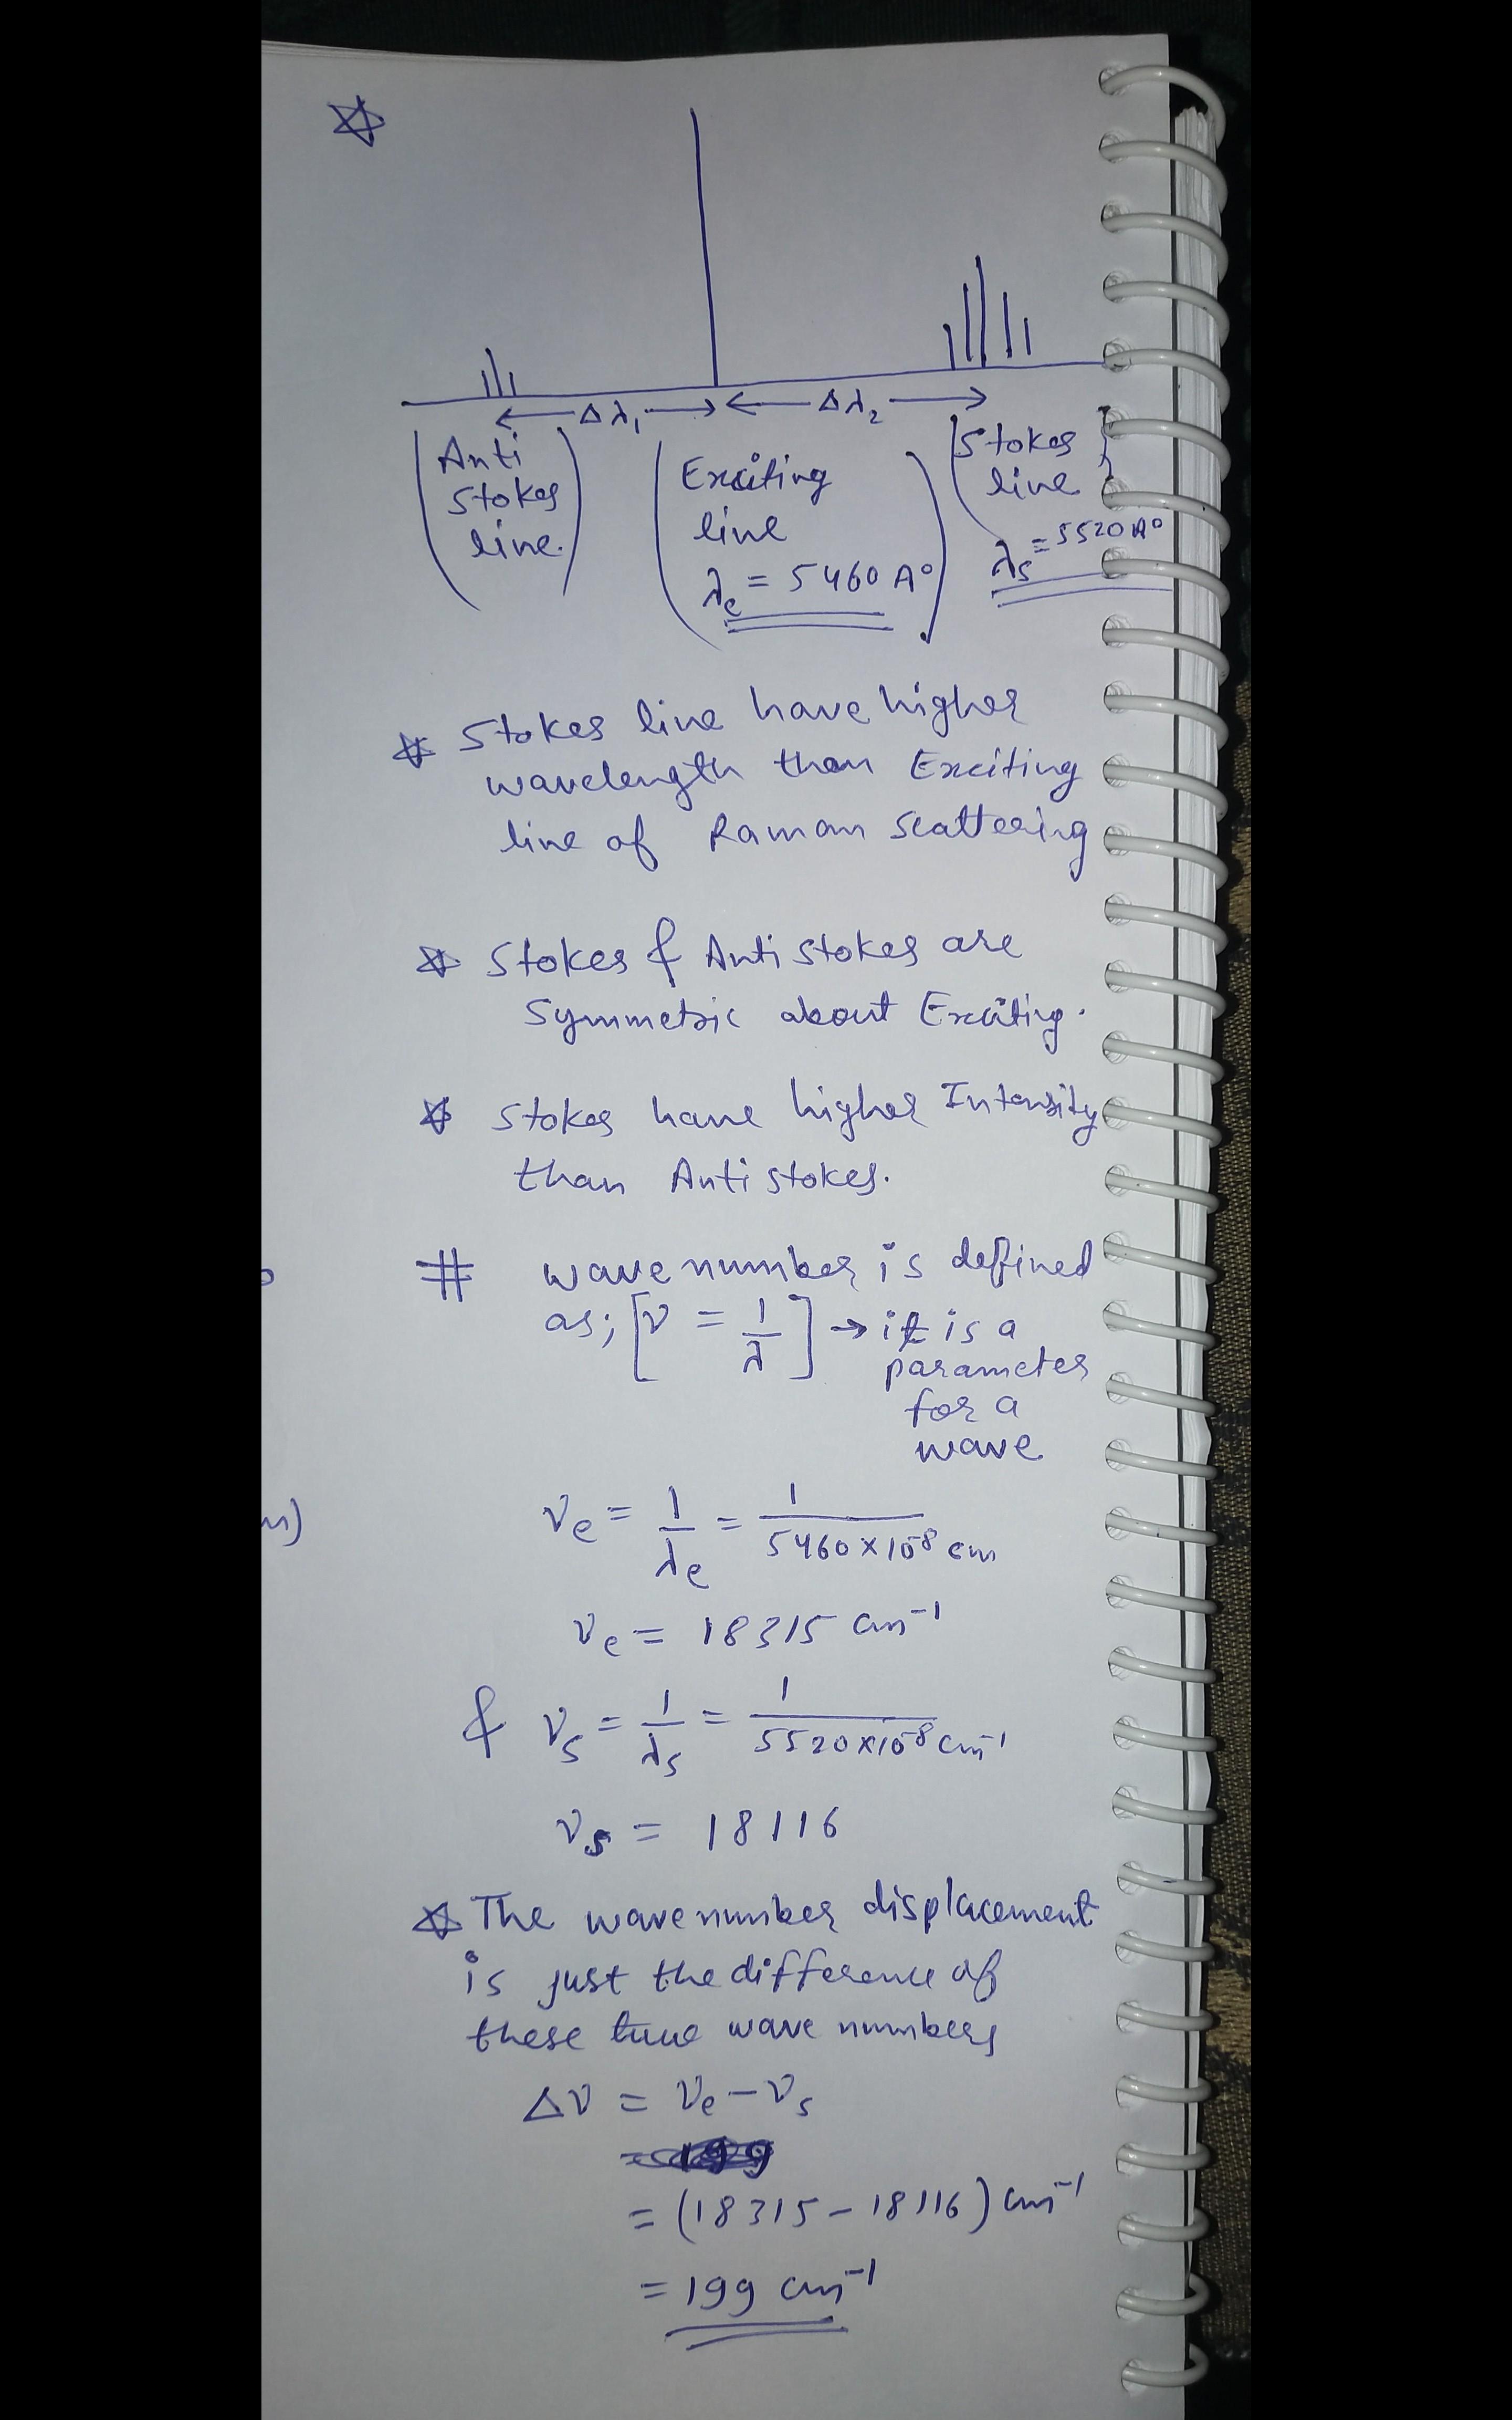 ← Δλ₁ → ← Δλ₂ →
Anti
Stokes
line.
Exciting
line
λe = 5460 A°
Stokes
line
λs = 5520 A°
Stokes line have higher
wavelength than Exciting
line of Raman Scattering
Stokes & Antistokes are
Symmetric about Exciting.
Stokes have higher Intensity
than Antistokes.
# wavenumber is defined
as; [ν = 1/λ] → it is a
parameter
for a
wave
νe = 1/λe = 1/5460×10⁻⁸ cm
νe = 18315 cm⁻¹
& νs = 1/λs = 1/5520×10⁻⁸ cm⁻¹
νs = 18116
The wavenumber displacement
is just the difference of
these two wave numbers
Δν = νe – νs
= (18315 – 18116) cm⁻¹
= 199 cm⁻¹